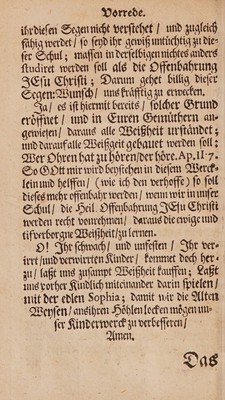 Vorrede.
ihr diesen Segen nicht verstehet / und zugleich
fähig werdet / so seyd ihr gewiß untüchtig zu die-
ser Schul; maßen in derselbigen nichts anders
studiret werden soll als die Offenbahrung
JEsu Christi; Darum gehet billig dieser
Segen-Wunsch / uns kräfftig zu erwecken.
Ja / es ist hiermit bereits / solcher Grund
eröffnet / und in Euren Gemüthern an-
gewiesen / daraus alle Weißheit urständet;
und darauf alle Weißheit gebauet werden soll:
Wer Ohren hat zu hören / der höre. Ap. II 7.
So GOtt mir wird beystehen in diesem Werck-
lein und helffen / (wie ich den verhoffe) so soll
dieses mehr offenbahr werden / wenn wir in unser
Schul / die Heil. Offenbahrung JEsu Christi
werden recht vornehmen / daraus die ewige und
tif verborgne Weißheit / zu lernen.
O! Ihr schwach / und unfesten / Ihr ver-
irrt / und verwirrten Kinder / kommet doch her-
zu / laßt uns zusampt Weißheit kauffen; Laßt
uns vorher Kindlich miteinander darin spielen /
mit der edlen Sophia; damit wir die Alten
Weysen / aus ihren Höhlen locken mögen un-
ser Kinderwerck zu verbesseren /
Amen.
Das